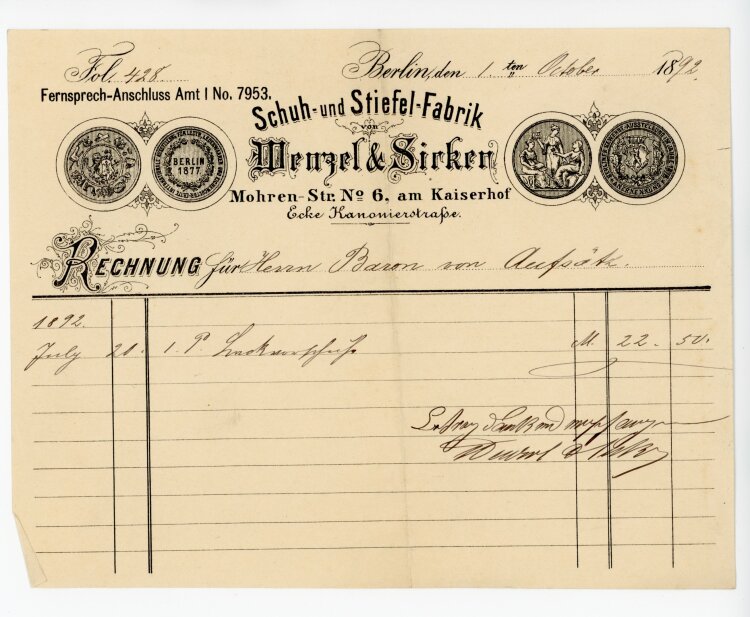 Fol. 428.
Berlin, den 1. ten October 1892.
Fernsprech-Anschluss Amt I No. 7953.
Schuh- und Stiefel-Fabrik
von
Wenzel & Sirken
Mohren-Str. No 6, am Kaiserhof
Ecke Kanonierstraße.
BERLIN 1877
RECHNUNG für Herrn Baron von Aufsätz.
1892.
July 20. 1 P. M. 22. 50.
Betrag dankend empfangen